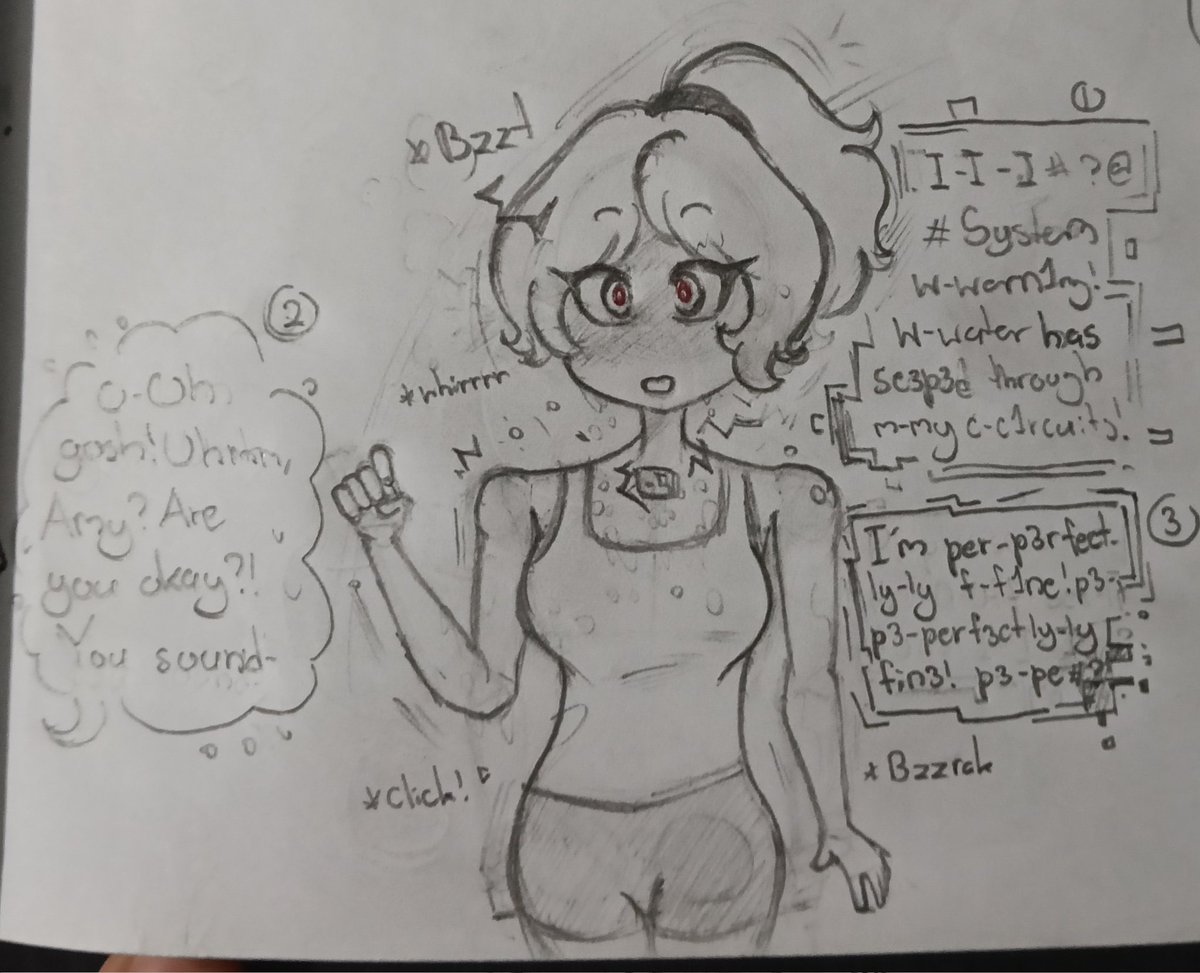 *Bzzt
①
I-I-I#?@
# System
w-warn1ng!
W-water has
se3p3d through
m-my c-c1rcuits!
②
O-Oh,
gosh! Uhmm,
Amy? Are
you okay?!
You sound-
*whirrrr
③
I'm per-p3rfect-
ly-ly f-f1ne! p3-
p3-perf3ctly-ly
fin3! p3-pe#?
*click!
*Bzzrak